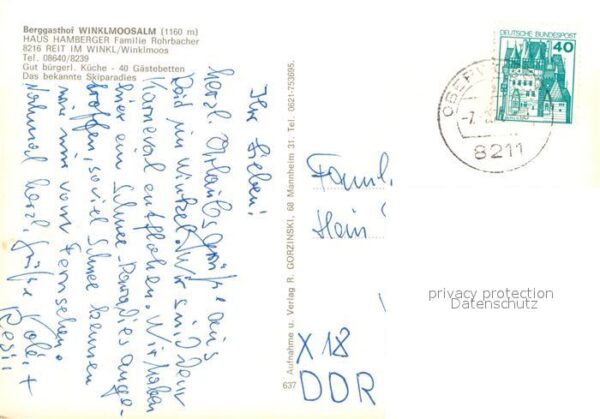 Berggasthof WINKLMOOSALM (1160 m)
HAUS HAMBERGER Familie Rohrbacher
8216 REIT IM WINKL/Winklmoos
Tel. 08640/8239
Gut bürgerl. Küche - 40 Gästebetten
Das bekannte Skiparadies
Ihr Lieben!
herzl. Urlaubsgrüße aus
Reid im Winkel. Wir sind dem
Karneval entflohen. Wir haben
hier ein Schnee-Paradies ange-
troffen, so viel Schnee kennen
wir nur vom Fernsehen.
Nochmal herzl. Grüße +
Resi
637 Aufnahme u. Verlag R. GORZINSKI, 68 Mannheim 31. Tel. 0621-753695.
DEUTSCHE BUNDESPOST
40
8211
Famil.
Hein
X 18
DDR
privacy protection
Datenschutz